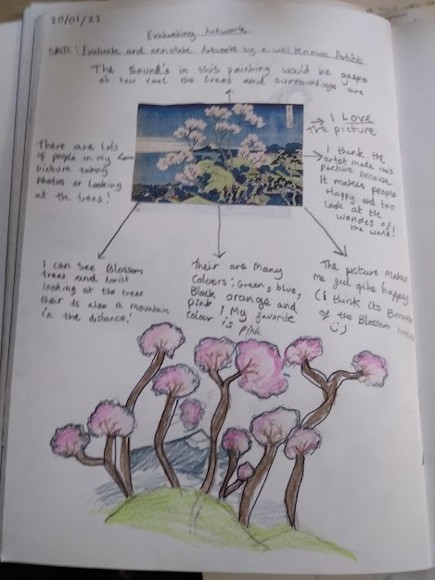 20/01/22
Evaluating Artwork
Skill: Evaluate and annotate Artwork by a well Known Artist
The Sounds in this painting would be gasps
at how cool the trees and surroundings are
I Love
the picture
There are lots
of people in my
picture taking
photos or looking
at the trees!
I think the
artist made this
picture because
It makes people
Happy and
look at the
wonders of
the world!
I can see Blossom
trees and
looking at the trees
their is also a mountain
in the distance!
Their are Many
Colours: Green, blue,
Black orange and
pink! My favorite
Colour is Pink
The picture makes
me feel quite happy
(I think its Because
of the Blossom trees
:)